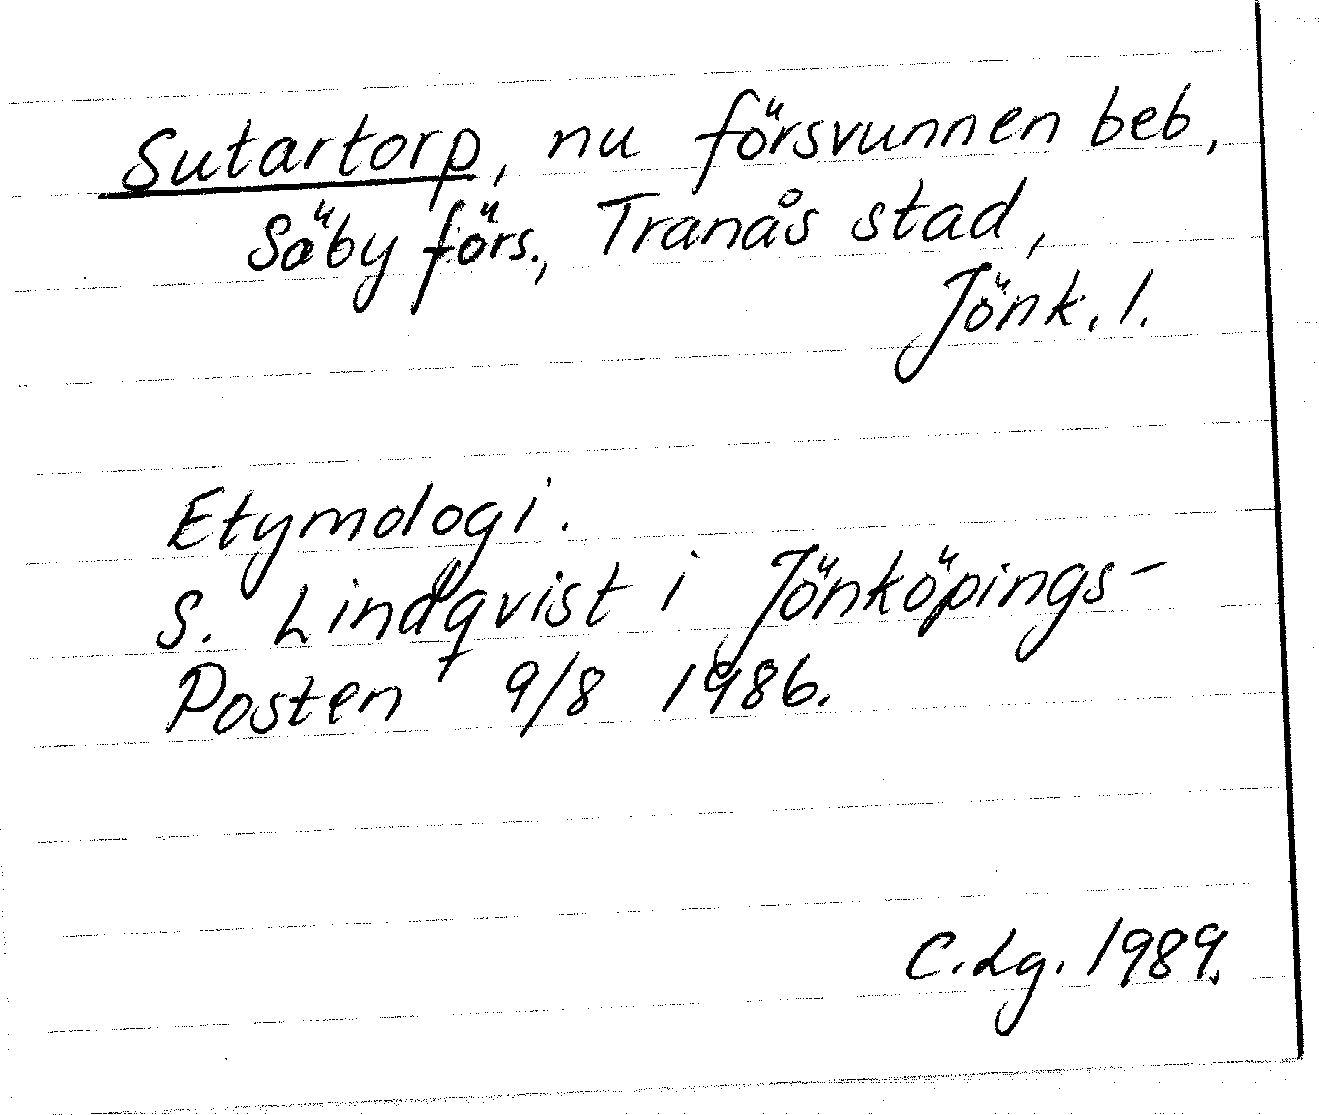 Sutartorp, nu försvunnen beb,
Säby förs., Tranås stad,
Jönk. l.
Etymologi.
S. Lindqvist i Jönköpings-
Posten 9/8 1986.
C.Lg. 1989.